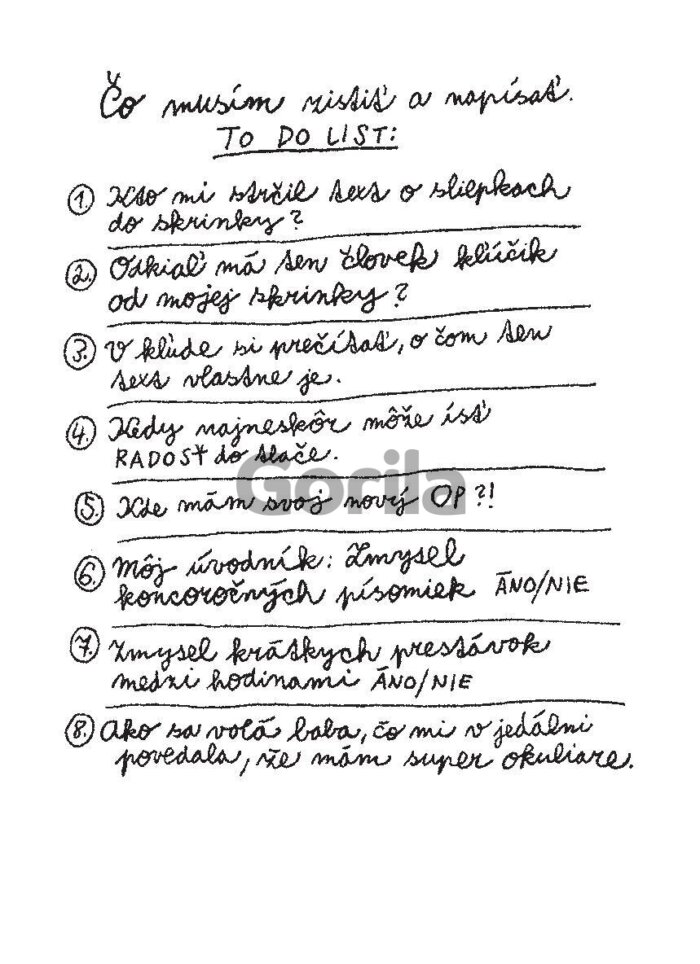 Čo musím zistiť a napísať.
TO DO LIST:
1. Kto mi strčil text o sliepkach
do skrinky?
2. Odkiaľ má ten človek kľúčik
od mojej skrinky?
3. V kľude si prečítať, o čom ten
text vlastne je.
4. Kedy najneskôr môže ísť
RADOSŤ do tlače.
Gorila
5. Kde mám svoj nový OP?!
6. Môj úvodník: Zmysel
koncoročných písomiek ÁNO/NIE
7. Zmysel krátkych prestávok
medzi hodinami ÁNO/NIE
8. Ako sa volá baba, čo mi v jedálni
povedala, že mám super okuliare.